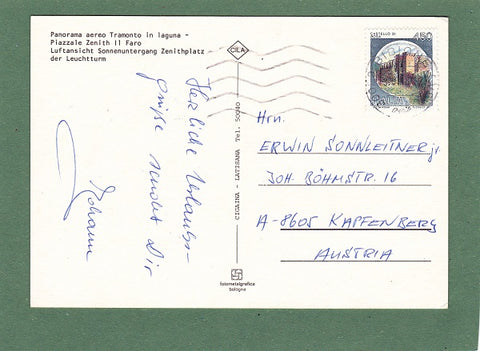 Panorama aereo Tramonto in laguna -
Piazzale Zenith Il Faro
Luftansicht Sonnenuntergang Zenithplatz
der Leuchtturm
CILA
CASTELLO DI
450
Herzliche Urlaubs-
grüße sendet Dir
Johann
CIGAINA - LATISANA Tel. 50090
Hrn.
ERWIN SONNLEITNER jr.
JOH. BÖHMSTR. 16
A-8605 KAPFENBERG
AUSTRIA
Bologna